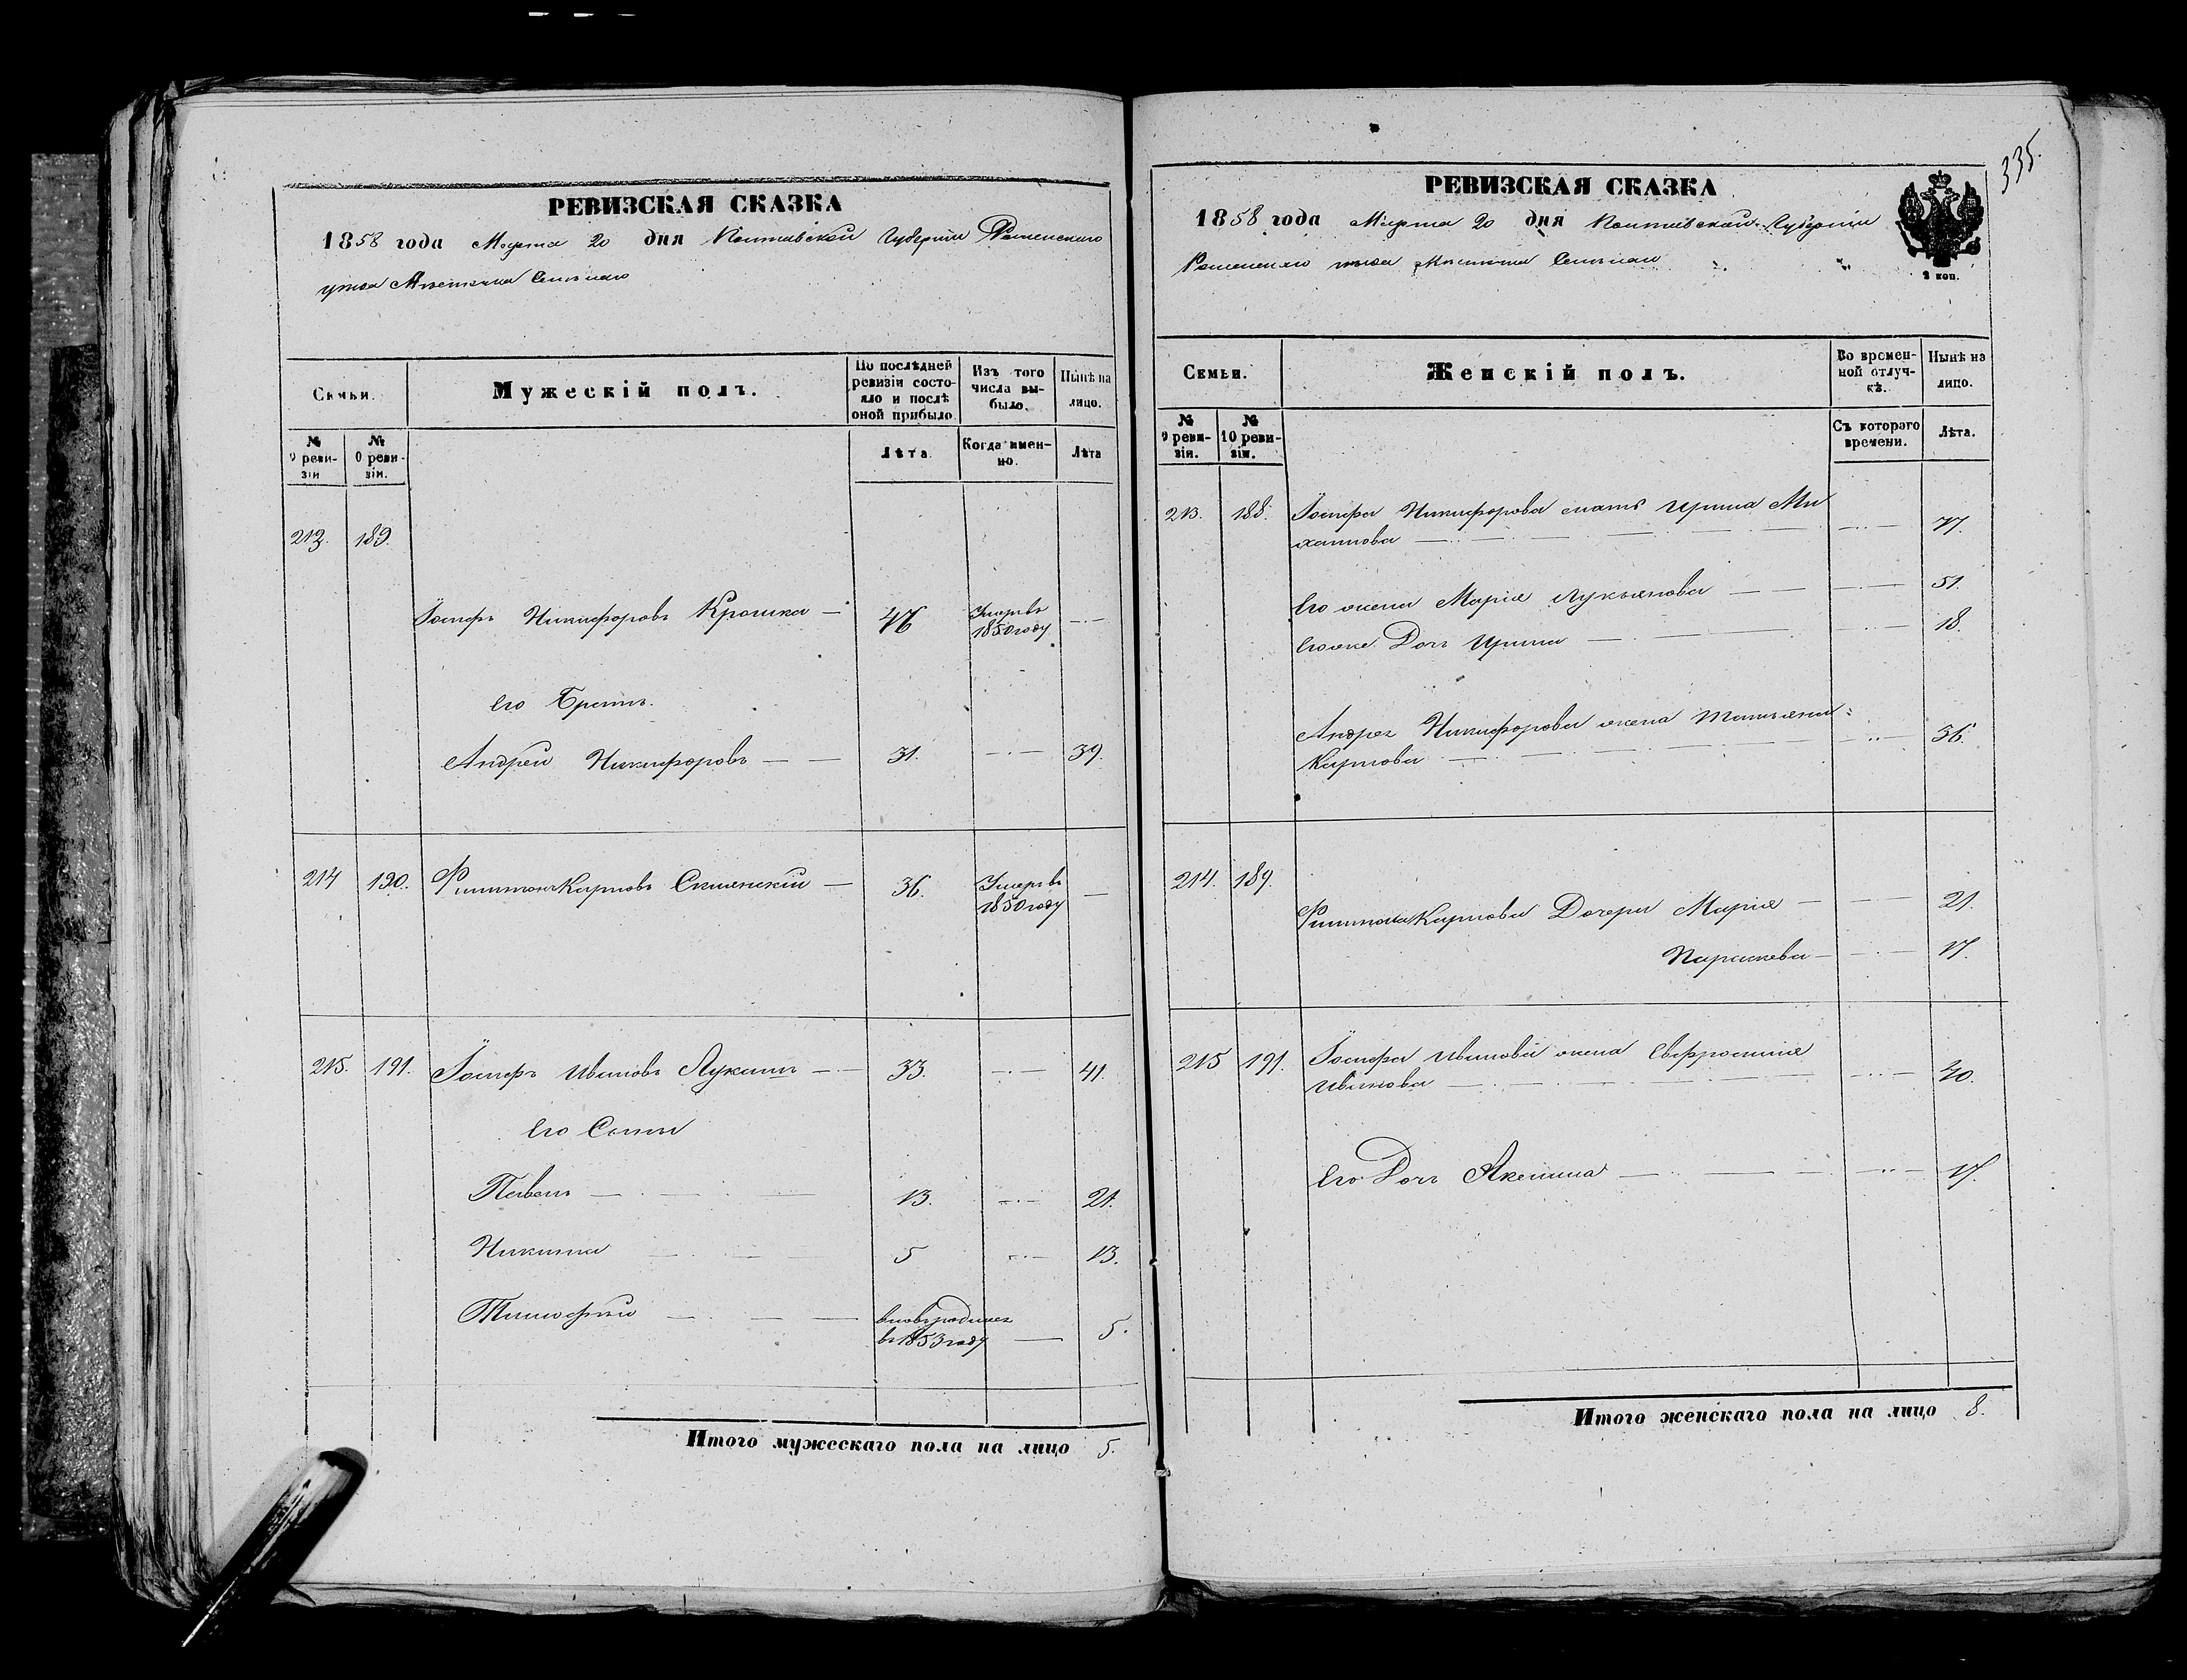 335.
РЕВИЗСКАЯ СКАЗКА
1858 года Марта 20 дня Полтавской Губерніи Роменского
уезда Местечка
Семьи.
Мужескій полъ.
По послѣдней ревизіи состояло и послѣ оной прибыло
Изъ того числа выбыло.
Нынѣ на лицо.
№ 9 ревизіи
№ 0 ревизіи.
Лѣта.
Когда именно.
Лѣта
213. 189.
Іосифъ Никифоровъ Крошка — 46 Умеръ в 1850 году — · —
его Братъ.
Андрей Никифоровъ — — 31. — · — 39.
214 190. Карповъ — 36. Умеръ в 1850 году —
215. 191. Іосифъ Ивановъ — · — 33. — · — 41.
Его Сыны
Павелъ — 13. — · — 21.
Никита — 5 — · — 13.
Тимофей — вновь родился в 1853 году — 5.
Итого мужескаго пола на лицо 5.
РЕВИЗСКАЯ СКАЗКА
1858 года Марта 20 дня Полтавской Губерніи
Роменского уезда Местечка
2 коп.
Семьи.
Женскій полъ.
Во временной отлучкѣ.
Нынѣ на лицо.
№ 9 ревизіи.
№ 10 ревизіи.
Съ котораго времени.
Лѣта.
213. 188. Іосифа Никифорова мать Ирина Ми
хайлова — 77.
Его жена Марія Лукьянова — — 51.
Его же Дочь Ирина — 18.
Андрея Никифорова жена Татьяна
Карпова — 36.
214. 189.
Карпова Дочери Марія — 21.
Параскева — 17.
215 191. Іосифа Иванова жена Евфросинія
Иванова — 40.
Его Дочь Аксинья — 17.
Итого женскаго пола на лицо 8.